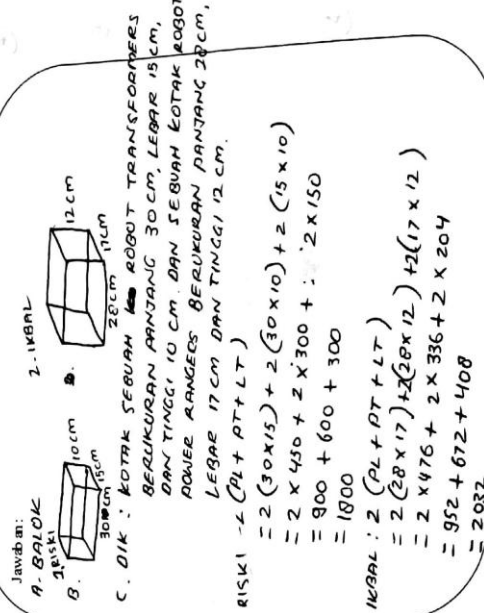 Jawaban:
A. BALOK
B. 1. RISKI
10 cm
15 cm
30 cm
2. IKBAL
12 cm
17 cm
28 cm
C. DIK : KOTAK SEBUAH ROBOT TRANSFORMERS
BERUKURAN PANJANG 30 CM, LEBAR 15 CM,
DAN TINGGI 10 CM. DAN SEBUAH KOTAK ROBOT
POWER RANGERS BERUKURAN PANJANG 28 CM,
LEBAR 17 CM DAN TINGGI 12 CM.
RISKI (PL + PT + LT)
= 2 (30 x 15) + 2 (30 x 10) + 2 (15 x 10)
= 2 x 450 + 2 x 300 + 2 x 150
= 900 + 600 + 300
= 1800
IKBAL : 2 (PL + PT + LT)
= 2 (28 x 17) + 2 (28 x 12) + 2 (17 x 12)
= 2 x 476 + 2 x 336 + 2 x 204
= 952 + 672 + 408
= 2032